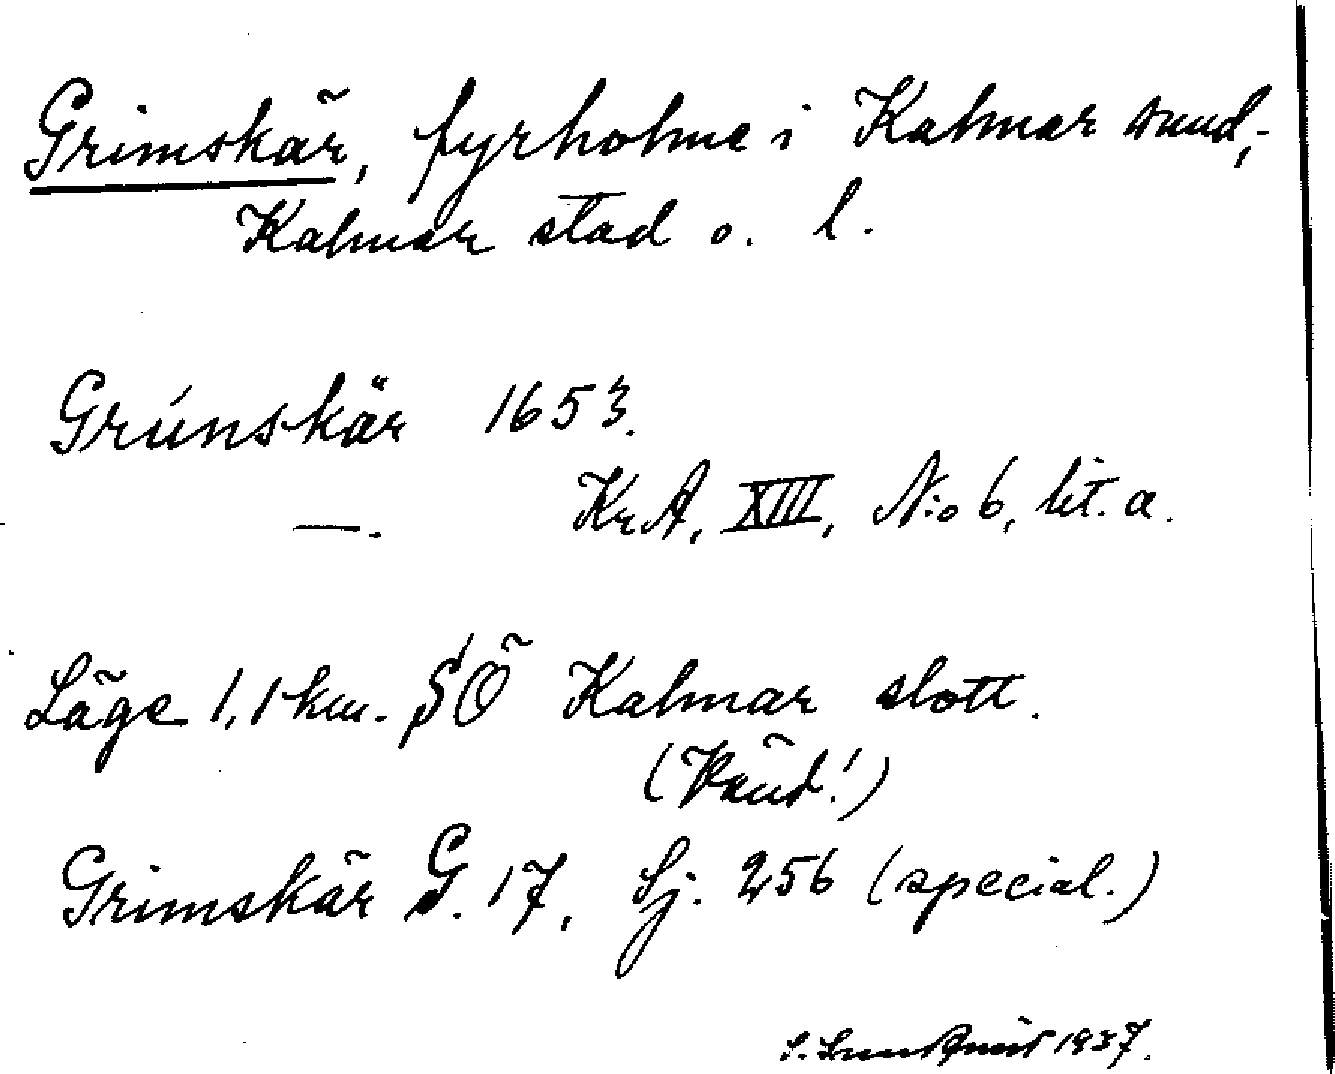 Grimskär, fyrholme i Kalmar sund,-
Kalmar stad o. l.
Grúnskär 1653.
—. KrA, XIII, N:o 6, lit. a.
Läge 1,1 km. SÖ Kalmar slott.
(Känd!)
Grimskär G. 17, Sj. 256 (special.)
1937.